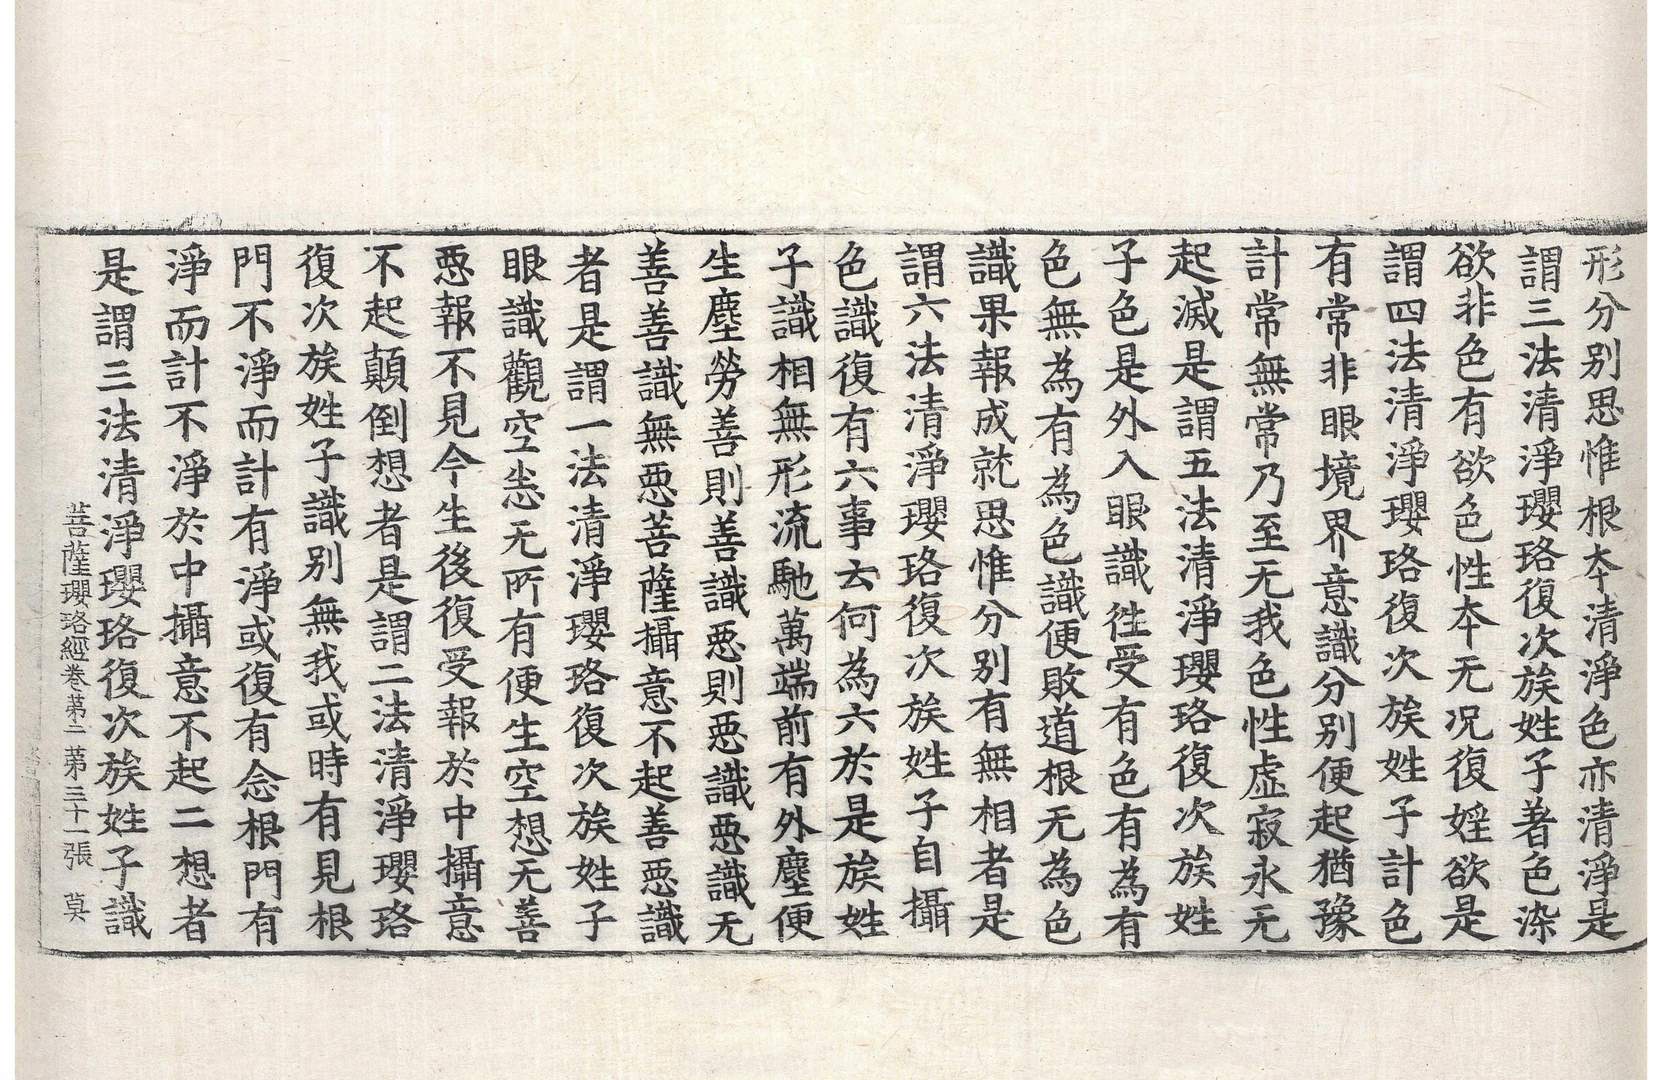 形分別思惟根夲清淨色亦清淨是
謂三法清淨瓔珞復次族姓子著色染
欲非色有欲色性夲无况復婬欲是
謂四法清淨瓔珞復次族姓子計色
有常非眼境界意識分別便起猶豫
計常無常乃至无我色性虛寂永无
起滅是謂五法清淨瓔珞復次族姓
子色是外入眼識徃受有色有為有
色無為有為色識便敗道根无為色
識果報成就思惟分別有無相者是
謂六法清淨瓔珞復次族姓子自攝
色識復有六事云何為六於是族姓
子識相無形流馳萬端前有外塵便
生塵勞善則善識惡則惡識惡識无
善善識無惡菩薩攝意不起善惡識
者是謂一法清淨瓔珞復次族姓子
眼識觀空恚无所有便生空想无善
惡報不見今生後復受報於中攝意
不起顛倒想者是謂二法清淨瓔珞
復次族姓子識別無我或時有見根
門不淨而計有淨或復有念根門有
淨而計不淨於中攝意不起二想者
是謂三法清淨瓔珞復次族姓子識
菩薩瓔珞經卷苐二 苐三十一張 莫